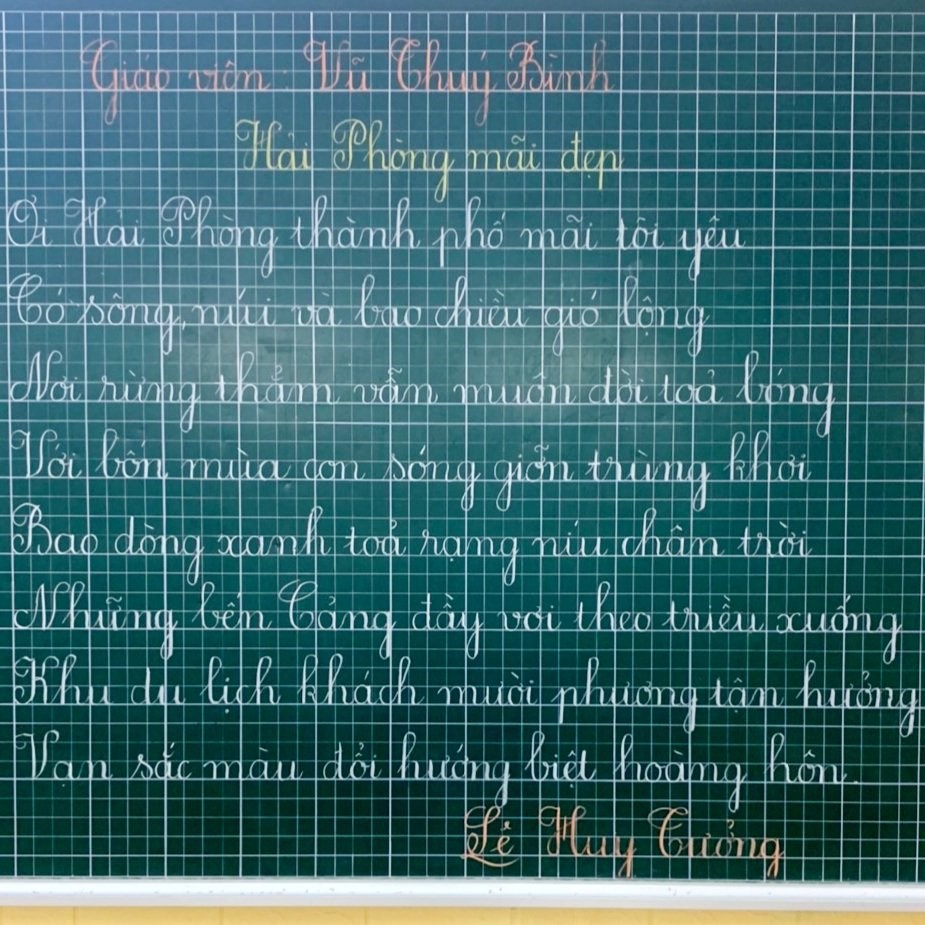 Giáo viên: Vũ Thuý Bình
Hải Phòng mãi đẹp
Ơi Hải Phòng thành phố mãi tôi yêu
Có sông, núi và bao chiều gió lộng
Nơi rừng thẳm vẫn muôn đời toả bóng
Với bốn mùa con sóng giỡn trùng khơi
Bao dòng xanh toả rạng níu chân trời
Những bến Cảng đầy vơi theo triều xuống
Khu du lịch khách mười phương tận hưởng
Vạn sắc màu đổi hướng biệt hoàng hôn.
Lê Huy Tưởng